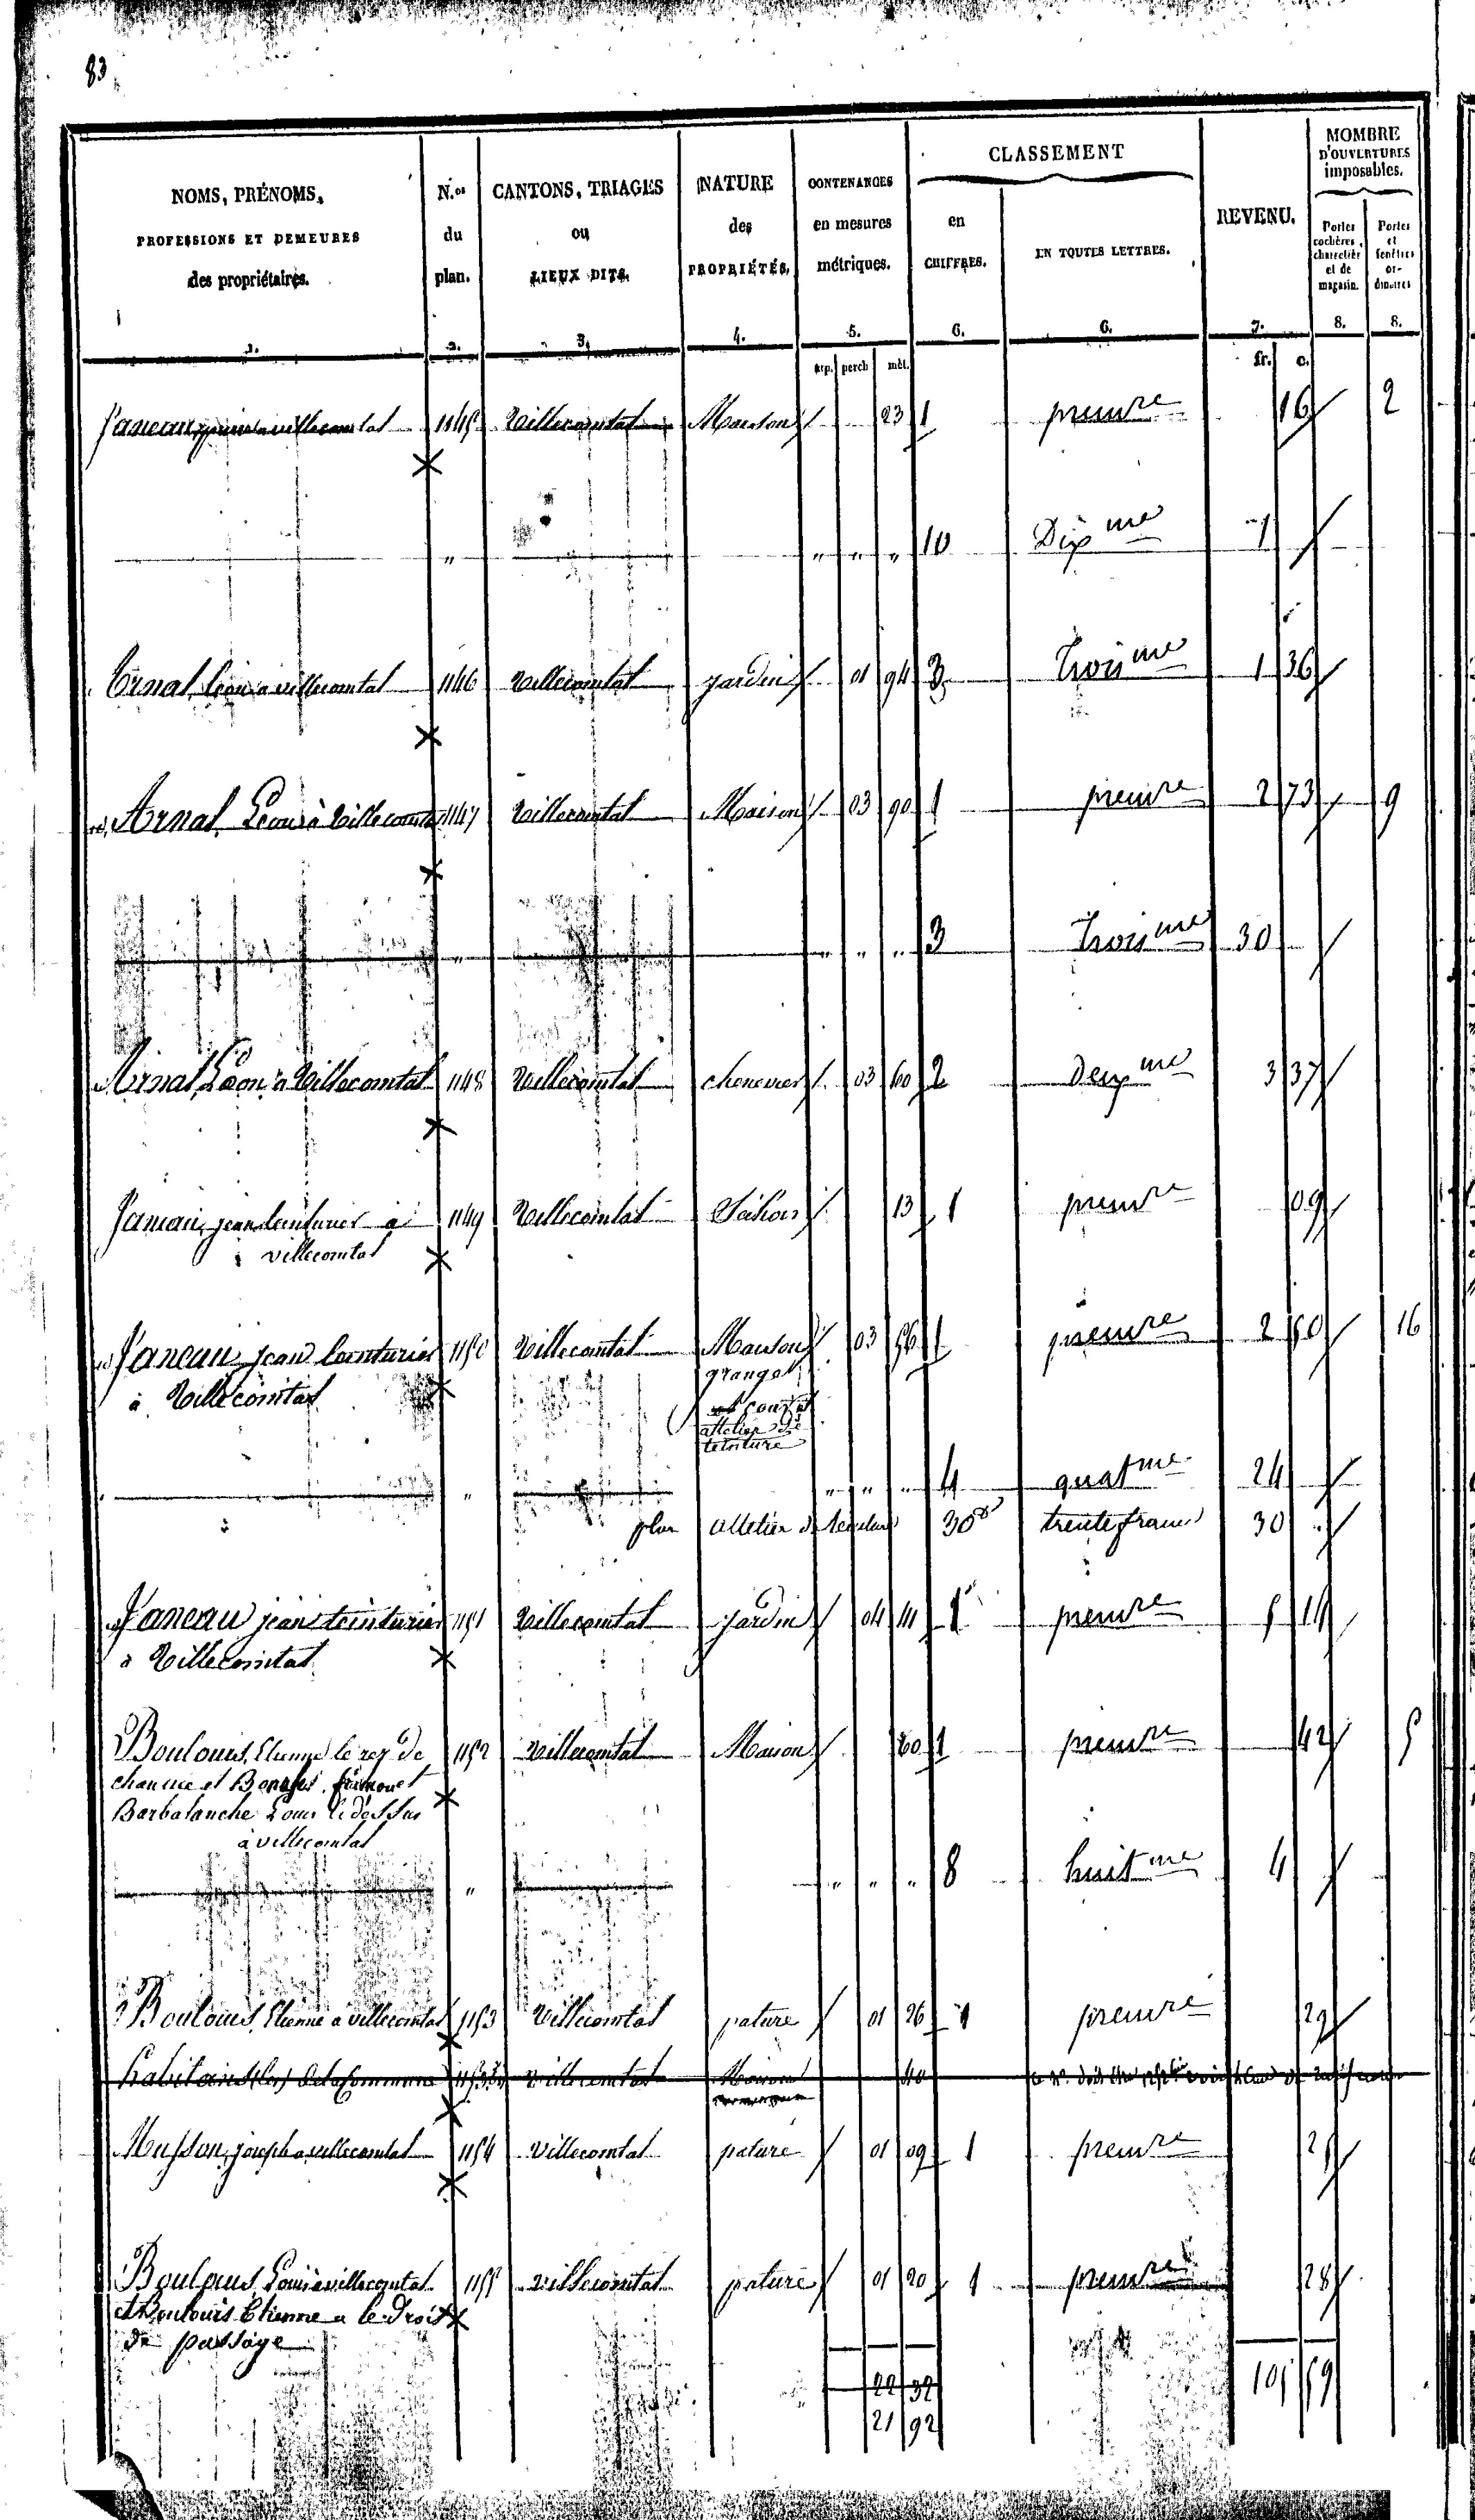 83
NOMS, PRÉNOMS, PROFESSIONS ET DEMEURES des propriétaires. 1.
N.os du plan. 2.
CANTONS, TRIAGES ou LIEUX DITS. 3.
NATURE des PROPRIÉTÉS. 4.
CONTENANCES en mesures métriques. 5.
CLASSEMENT
en CHIFFRES. 6.
EN TOUTES LETTRES. 6.
REVENU. 7.
MOMBRE D'OUVERTURES imposables.
Portes cochères, charretièr et de magasin. 8.
Portes et fenêtres or- dinaires 8.
arp. perch mèt. fr. c.
Janeau à villecomtal 1145 Villecomtal Maison 23 1 premre 16 2
" " " " 10 Dixme 1
Arnal Léon à villecomtal 1146 Villecomtal jardin 01 94 3 troisme 1 36
Arnal Léon à Villecomtal 1147 Villecomtal Maison 03 90 1 premre 2 73 9
" " " " 3 troisme 30
Arnal Léon à Villecomtal 1148 Villecomtal chenevier 03 60 2 deuxme 3 37
jean teinturier à 1149 Villecomtal Séchoir 13 1 premre 09
à villecomtal
Janeau jean teinturier 1150 Villecomtal Maison 03 56 1 premre 2 50 16
à Villecomtal grange
et cour et
attelier de
teinture
" " " " 4 quatme 24
plus attelier de teinture 30 trente francs 30
Janeau jean teinturier 1151 Villecomtal jardin 04 41 1 premre 5 14
à Villecomtal
Boulouis Etienne le rez de 1152 Villecomtal Maison 60 1 premre 42 5
chaussée et
Barbalanche Louis le dessus
à villecomtal
" " " " 8 huitme 4
Boulouis Etienne à villecomtal 1153 Villecomtal pature 01 26 1 premre 29
habitans (les) de la Commune 1153 bis villecomtal Maison 40
Musson joseph à villecomtal 1154 villecomtal pature 01 09 1 premre 25
Boulouis Louis à villecomtal 1155 villecomtal pature 01 20 1 premre 28
et Boulouis Etienne a le droit
de passage
22 32 105 59
21 92